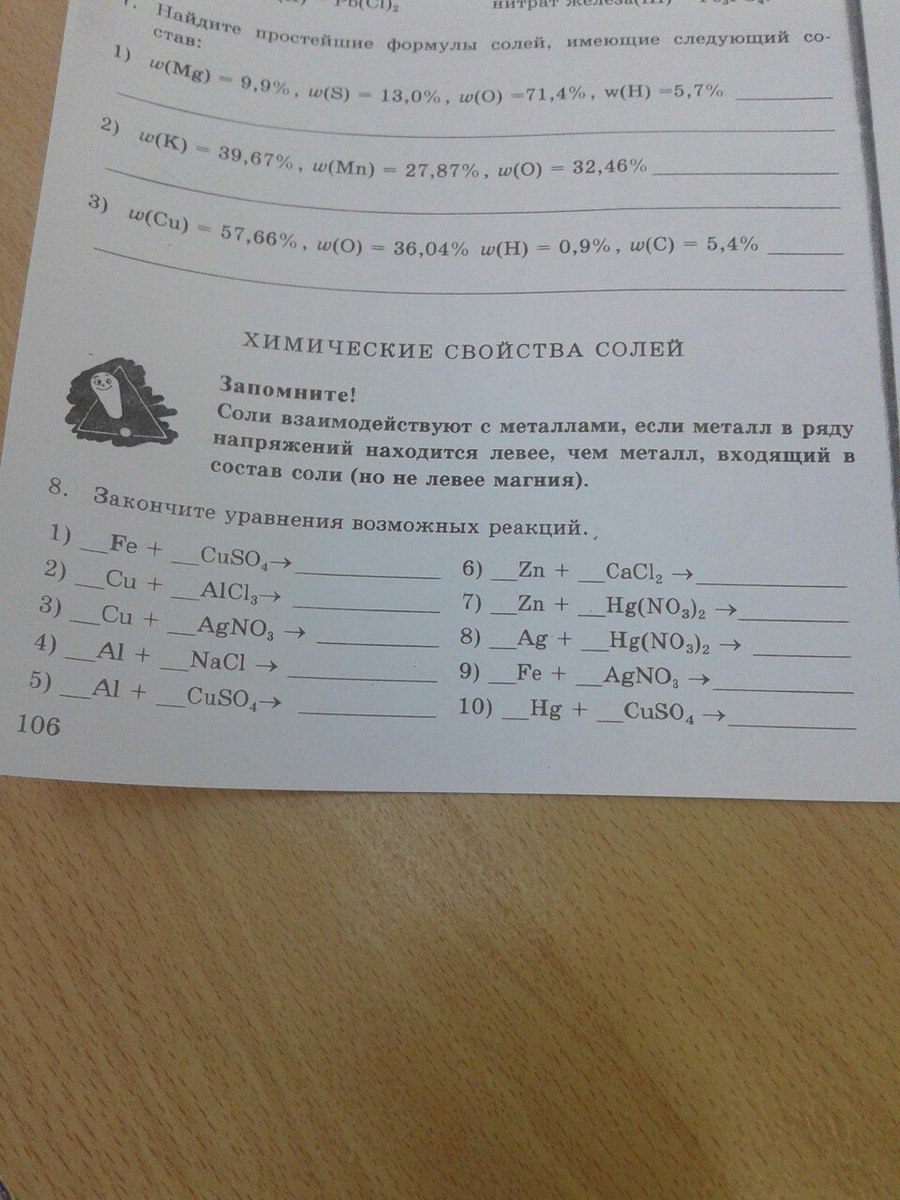 Pb(Cl)₂
7. Найдите простейшие формулы солей, имеющие следующий со-
став:
1) w(Mg) = 9,9%, w(S) = 13,0%, w(O) =71,4%, w(H) =5,7%
2) w(K) = 39,67%, w(Mn) = 27,87%, w(O) = 32,46%
3) w(Cu) = 57,66%, w(O) = 36,04% w(H) = 0,9%, w(C) = 5,4%
ХИМИЧЕСКИЕ СВОЙСТВА СОЛЕЙ
Запомните!
Соли взаимодействуют с металлами, если металл в ряду
напряжений находится левее, чем металл, входящий в
состав соли (но не левее магния).
8. Закончите уравнения возможных реакций.
1) __Fe + __CuSO₄→
2) __Cu + __AlCl₃→
3) __Cu + __AgNO₃ →
4) __Al + __NaCl →
5) __Al + __CuSO₄→
6) __Zn + __CaCl₂ →
7) __Zn + __Hg(NO₃)₂ →
8) __Ag + __Hg(NO₃)₂ →
9) __Fe + __AgNO₃ →
10) __Hg + __CuSO₄ →
106